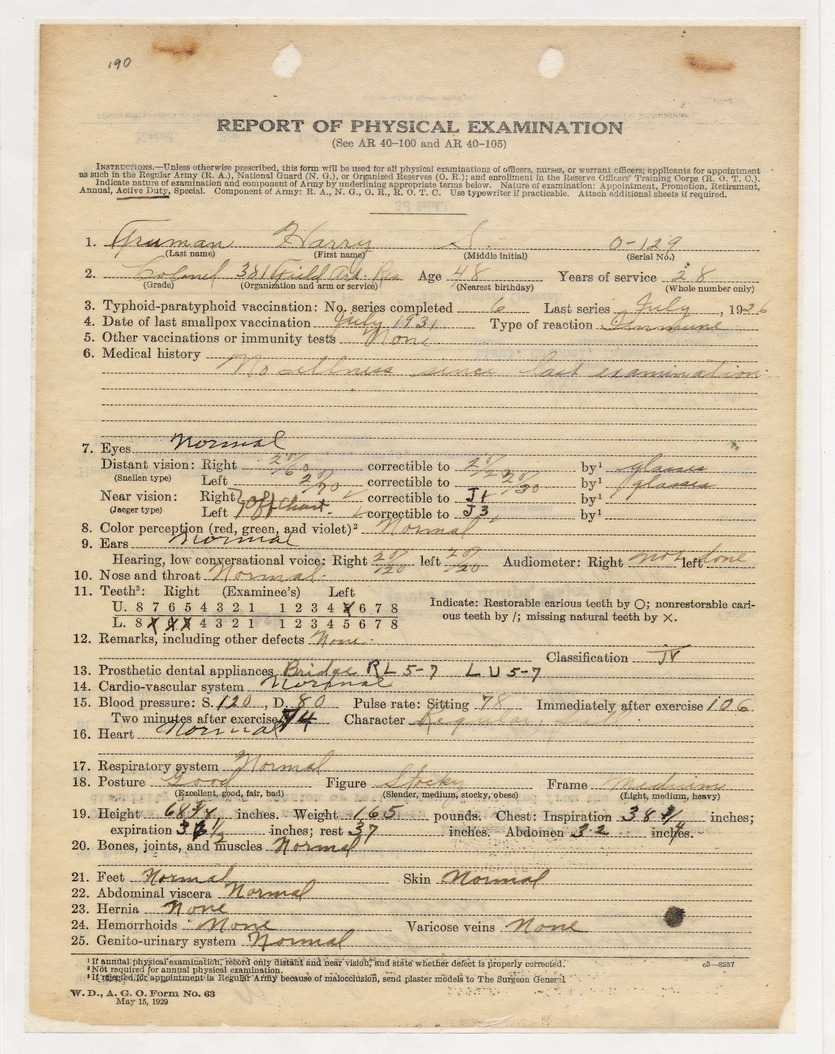 190
REPORT OF PHYSICAL EXAMINATION
(See AR 40–100 and AR 40–105)
INSTRUCTIONS.—Unless otherwise prescribed, this form will be used for all physical examinations of officers, nurses, or warrant officers; applicants for appointment
as such in the Regular Army (R. A.), National Guard (N. G.), or Organized Reserves (O. R.); and enrollment in the Reserve Officers' Training Corps (R. O. T. C.).
Indicate nature of examination and component of Army by underlining appropriate terms below. Nature of examination: Appointment, Promotion, Retirement,
Annual, Active Duty, Special. Component of Army: R. A., N. G., O. R., R. O. T. C. Use typewriter if practicable. Attach additional sheets if required.
1. Truman Harry S. 0-129
(Last name) (First name) (Middle initial) (Serial No.)
2. Colonel 381 Field Art. Res Age 48 Years of service 28
(Grade) (Organization and arm or service) (Nearest birthday) (Whole number only)
3. Typhoid-paratyphoid vaccination: No. series completed 6 Last series July, 1926
4. Date of last smallpox vaccination July 1931 Type of reaction Immune
5. Other vaccinations or immunity tests None
6. Medical history
No illness since last examination.
7. Eyes Normal
Distant vision: Right correctible to by¹ glasses
(Snellen type) Left 20/70 correctible to 20/30 by¹ glasses
Near vision: Right correctible to J1 by¹
(Jaeger type) Left Off Chart. correctible to J3 by¹
8. Color perception (red, green, and violet)² Normal
9. Ears Normal
Hearing, low conversational voice: Right 20/20 left 20/20 Audiometer: Right not left done
10. Nose and throat Normal.
11. Teeth³: Right (Examinee's) Left
U. 8 7 6 5 4 3 2 1 1 2 3 4 X 6 7 8
L. 8 X X X 4 3 2 1 1 2 3 4 5 6 7 8
Indicate: Restorable carious teeth by O; nonrestorable cari-
ous teeth by /; missing natural teeth by ×.
12. Remarks, including other defects None.
Classification IV
13. Prosthetic dental appliances Bridge RL 5-7 LU 5-7
14. Cardio-vascular system Normal
15. Blood pressure: S. 120, D. 80 Pulse rate: Sitting 78 Immediately after exercise 106
Two minutes after exercise 74 Character Regular, full
16. Heart Normal
17. Respiratory system Normal
18. Posture Good Figure Stocky Frame Medium
(Excellent, good, fair, bad) (Slender, medium, stocky, obese) (Light, medium, heavy)
19. Height 68 3/4 inches. Weight 165 pounds. Chest: Inspiration 38 3/4 inches;
expiration inches; rest 37 inches. Abdomen 32 inches.
20. Bones, joints, and muscles Normal
21. Feet Normal Skin Normal
22. Abdominal viscera Normal
23. Hernia None
24. Hemorrhoids None Varicose veins None
25. Genito-urinary system Normal
¹ If annual physical examination, record only distant and near vision, and state whether defect is properly corrected. c3—8237
² Not required for annual physical examination.
³ If rejected for appointment in Regular Army because of malocclusion, send plaster models to The Surgeon General
W. D., A. G. O. Form No. 63
May 15, 1929